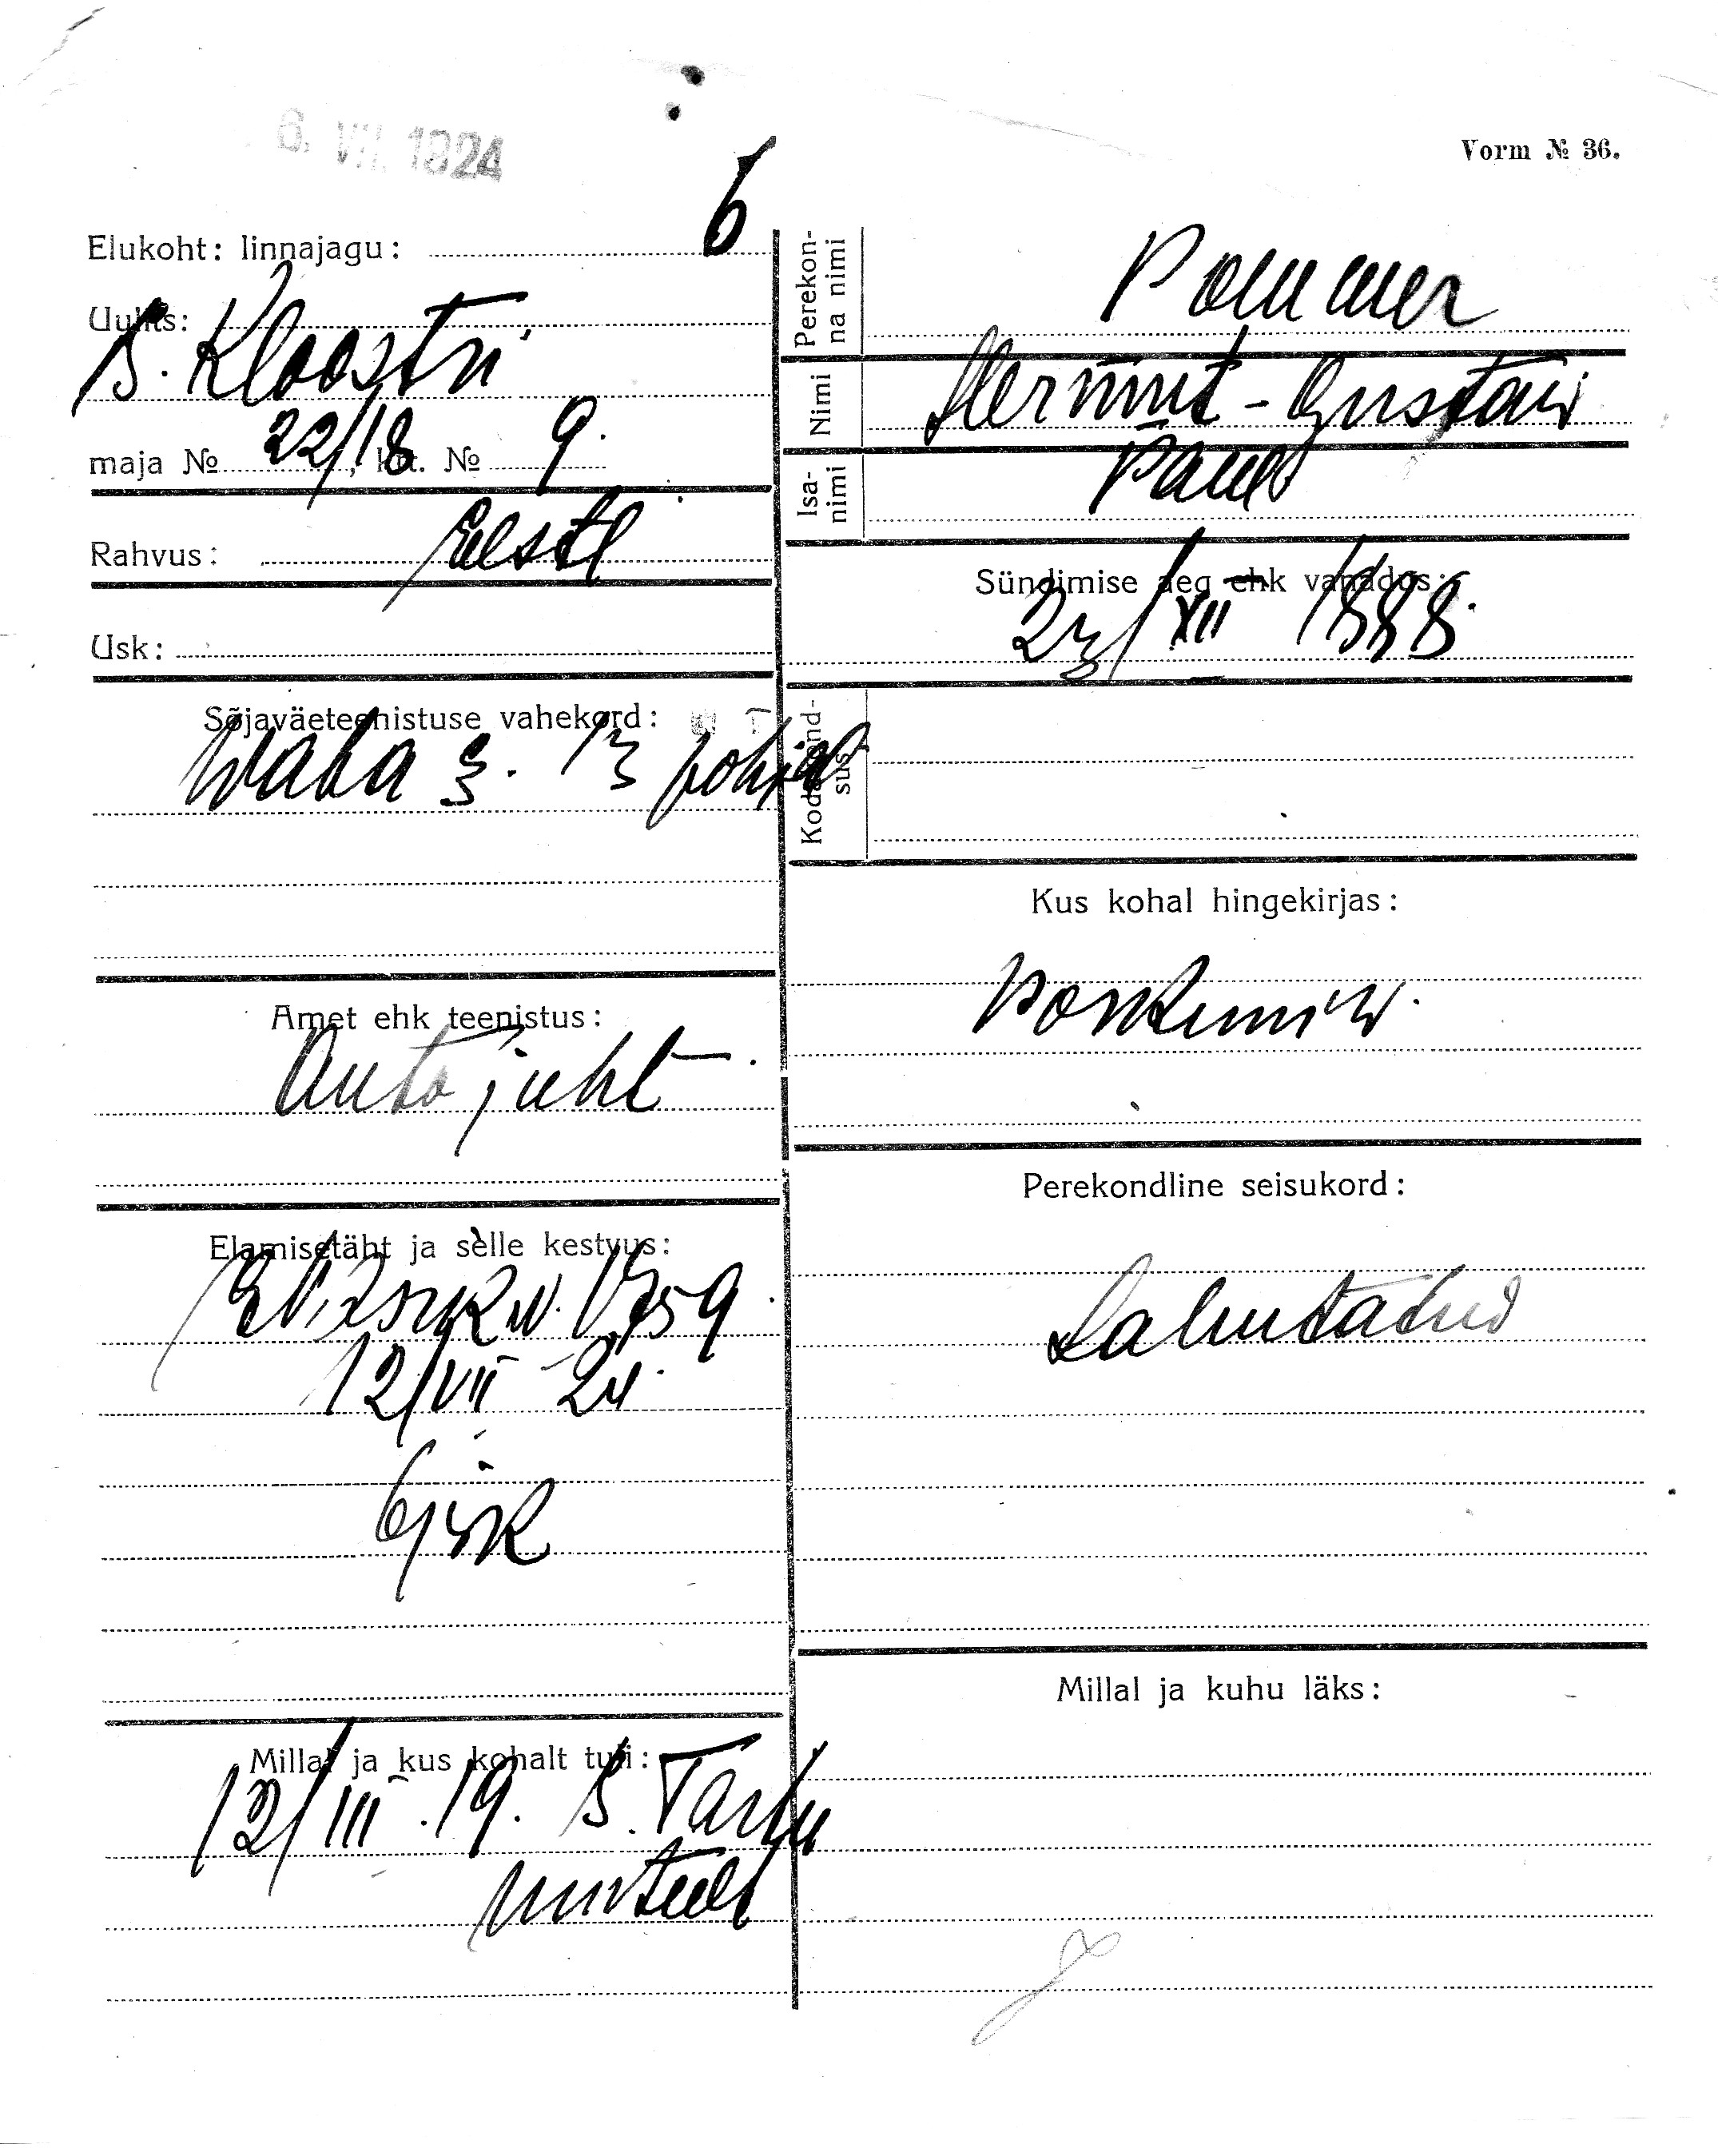 6. VII. 1924
Vorm № 36.
Elukoht: linnajagu: 6
Uulits:
S. Kloostri
maja № 22/18, krt. № 9.
Rahvus: Eesti
Usk:
Sõjaväeteenistuse vahekord:
Waba § 13 põhjal
Amet ehk teenistus:
Auto juht
Elamisetäht ja selle kestvus:
12/VII 24.
6 jsk
Millal ja kus kohalt tuli:
12/III. 19. S. Tartu
mnteelt
Perekonna nimi
Pommer
Nimi
Hermut-Gustav
Isanimi
Paul
Sündimise aeg ehk vanadus:
23/XII 1888.
Kodakondsus
Kus kohal hingekirjas:
Perekondline seisukord:
Lahutatud
Millal ja kuhu läks: